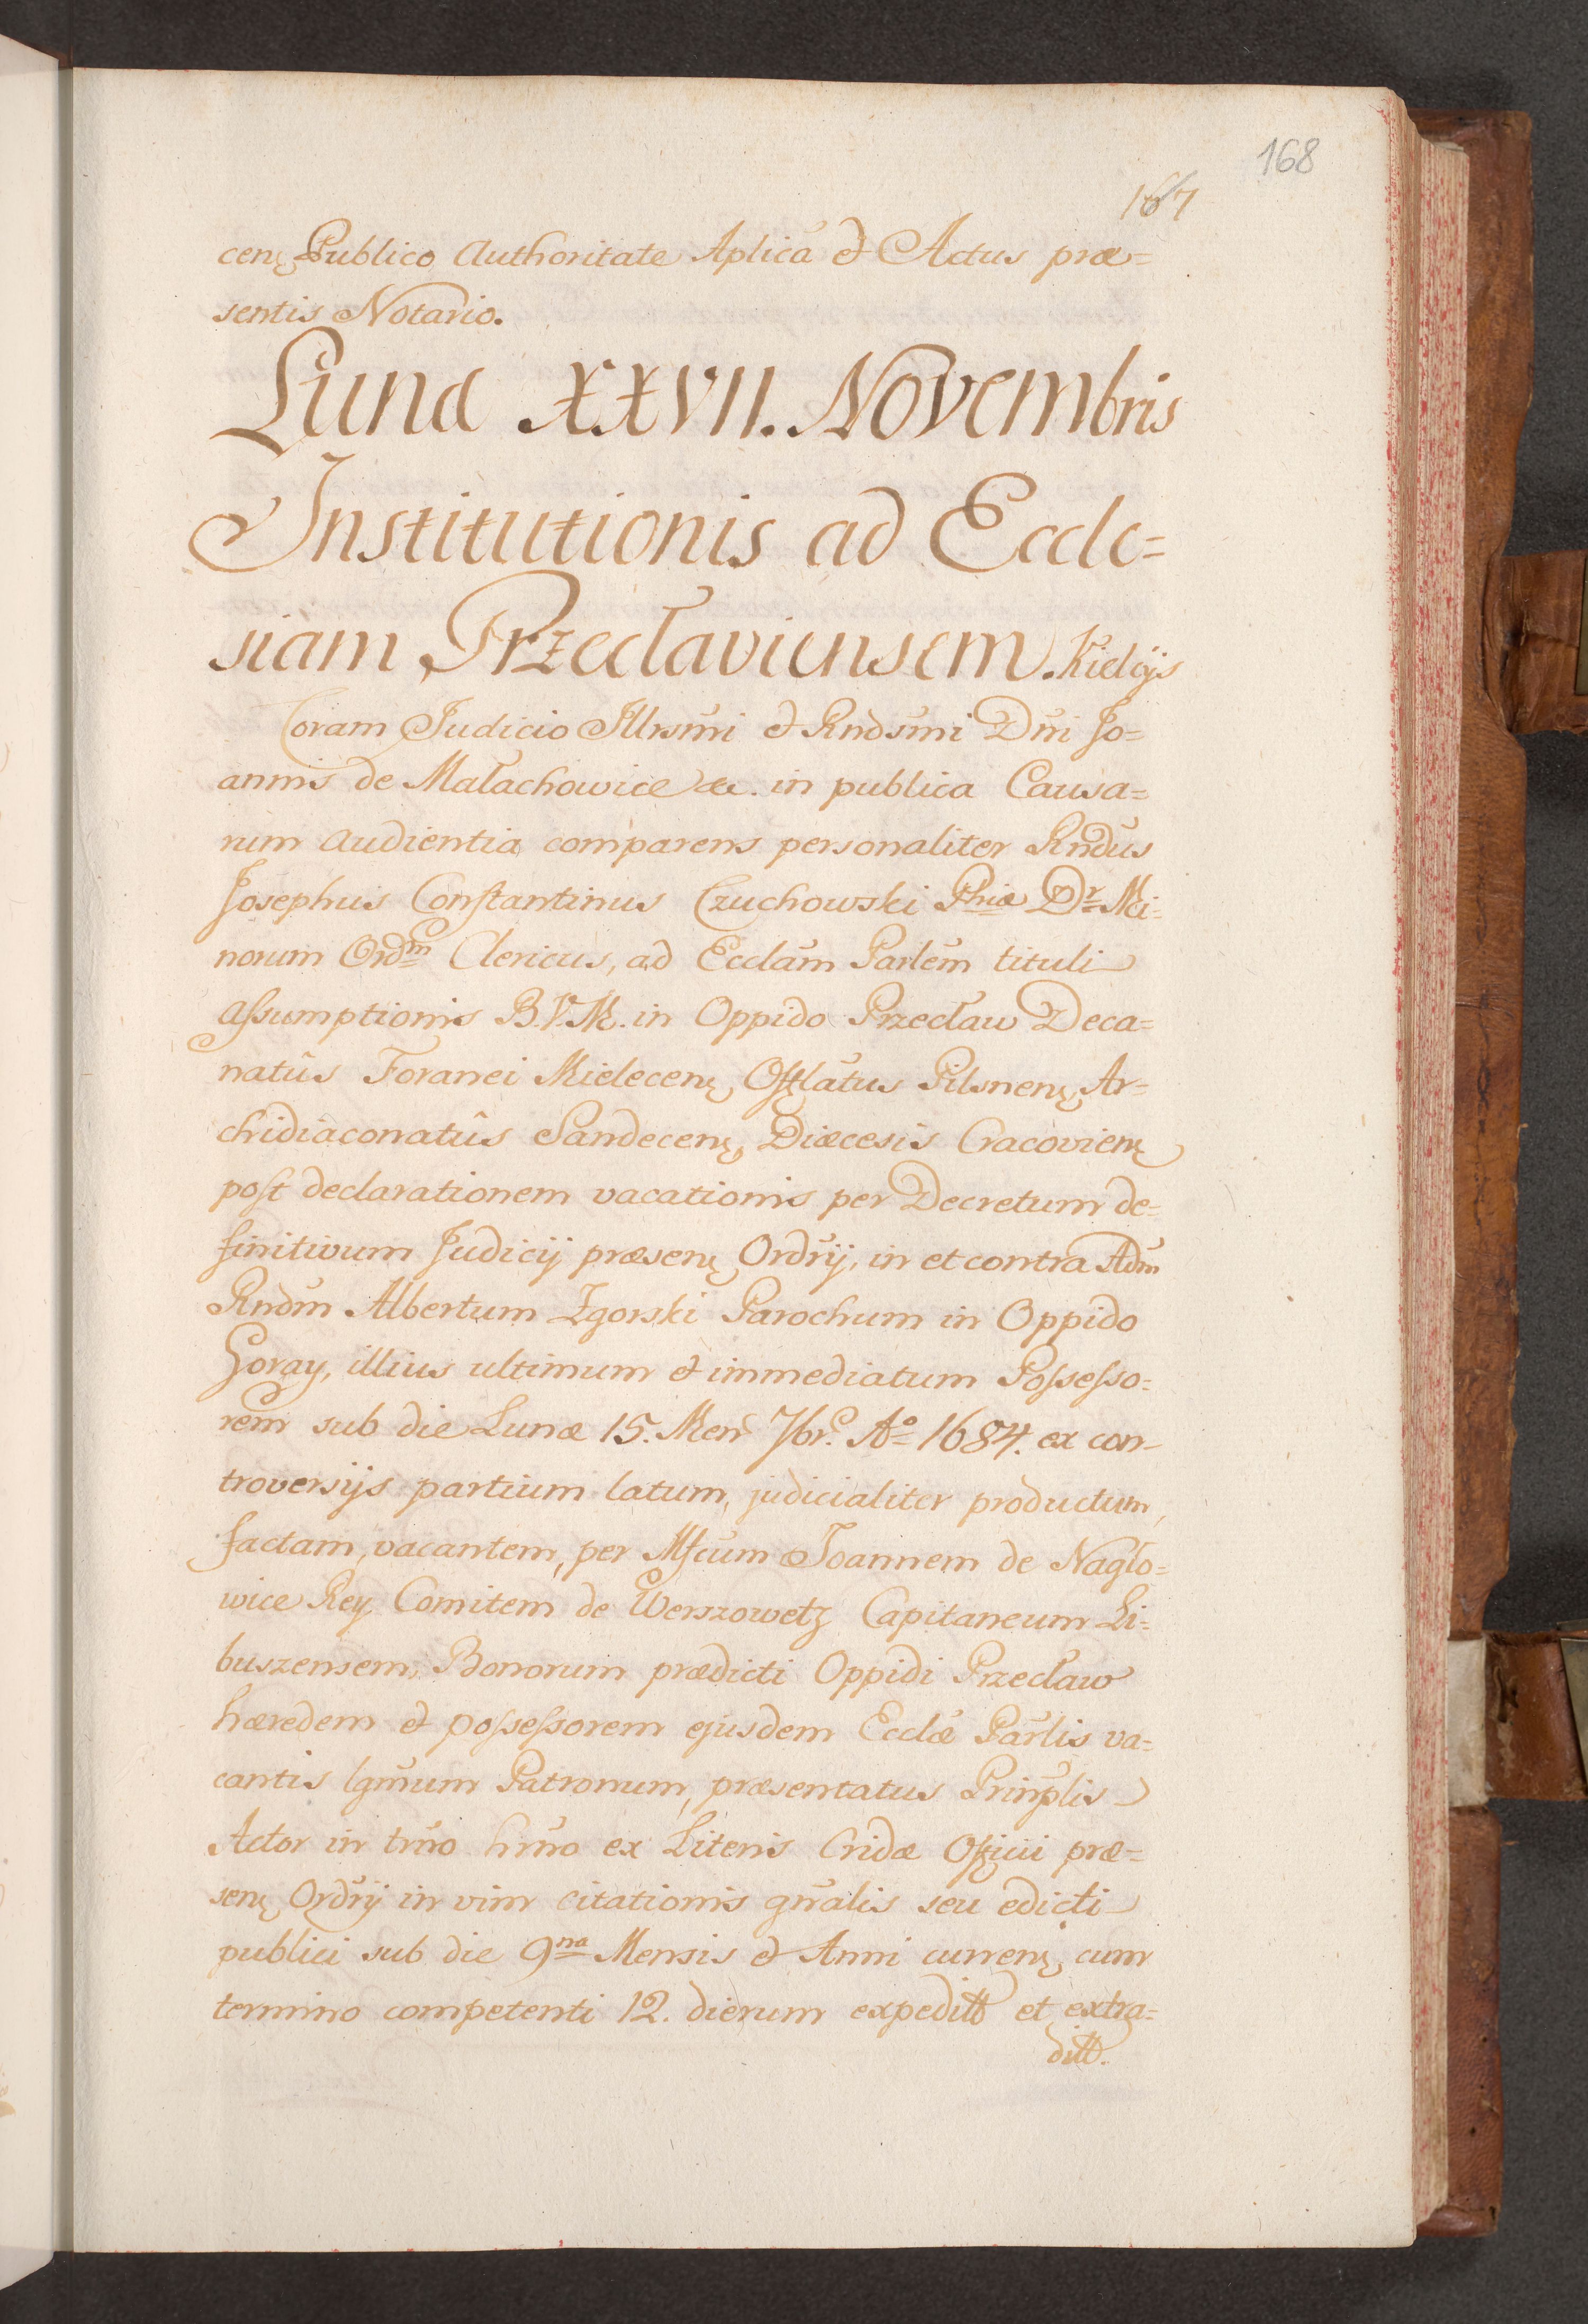 168
167
cenę Publico Authoritate Aplica et Actus præ=
sentis Notario.
Luna XXVII. Novembris
Institutionis ad Eccle=
siam Przecłaviensem. Kielcijs
Coram Judicio Illrsmi et Rndsmi Dni Jo=
annis de Małachowice &c. in publica Causa=
rum Audientia comparens personaliter Rndus
Josephus Constantinus Czuchowski Phiæ Dr Mi=
norum Ordm Clericus, ad Ecclam Parlem tituli
Assumptionis B.V.M. in Oppido Przecław Deca=
natûs Foranei Mielecenę, Offlatus Pilsnenę, Ar=
chidiaconatûs Sandecenę, Diæcesis Cracovienę
post declarationem vacationis per Decretum de=
finitivum Judicij præsenę Ordrij, in et contra Adm
Rndm Albertum Zgorski Parochum in Oppido
Goray, illius ultimum et immediatum Possesso=
rem sub die Lunæ 15. Men 7br. Aº 1684. ex con-
troversijs partium latum, judicialiter productum,
factam, vacantem, per Mfcum Joannem de Nagło=
wice Rey Comitem de Werszowetz Capitaneum Li=
buszensem, Bonorum prædicti Oppidi Przecław
hæredem et possessorem ejusdem Ecclæ Parlis va=
cantis lgmum Patronum, præsentatus Prinplis
Actor in trno hrno ex Literis Cridæ Officii præ=
senę Ordrij in vim citationis gnralis seu edicti
publici sub die 9na Mensis et Anni currenę, cum
termino competenti 12. dierum expeditt et extra=
ditt.